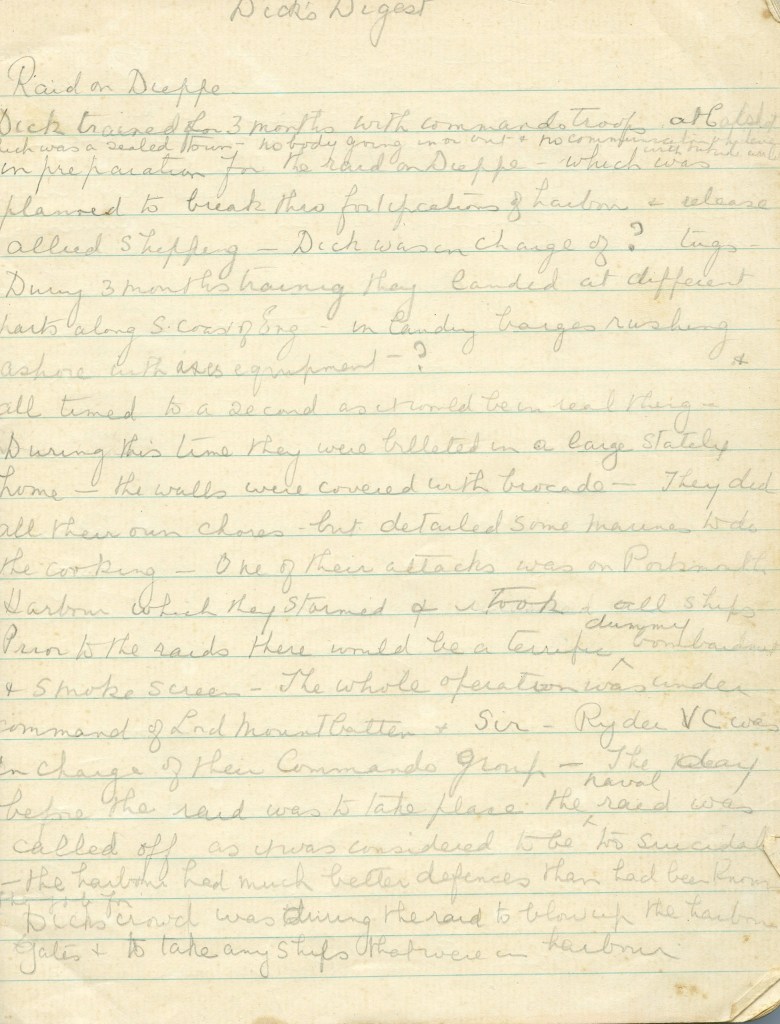 Dick's Digest
Raid on Dieppe
Dick trained for 3 months with commando troops at
which was a sealed town - nobody going in or out & no communication with outside
in preparation for the raid on Dieppe - which was
planned to break thro fortifications of harbour & release
allied shipping - Dick was in charge of ? tugs -
During 3 months training they landed at different
parts along S. coast of Eng - in landing barges rushing
ashore with equipment - ? &
all timed to a second as it would be in real thing -
During this time they were billeted in a large stately
home - the walls were covered with brocade - They did
all their own chores - but detailed some marines to do
the cooking - One of their attacks was on Portsmouth
Harbour which they stormed & took all ships
dummy
Prior to the raids there would be a terrific ^ bombardment
& smoke screen - The whole operation was under
command of Lord Mountbatten & Sir - Ryder VC was
in charge of their Commando Group - The day
naval
before the raid was to take place the ^ raid was
called off as it was considered to be too suicidal
- the harbour had much better defences than had been known
Dicks crowd was during the raid to blow up the harbour
gates & to take any ships that were in harbour